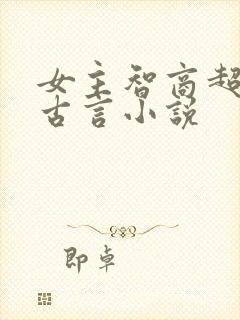 女主智商超
古言小说
即卓